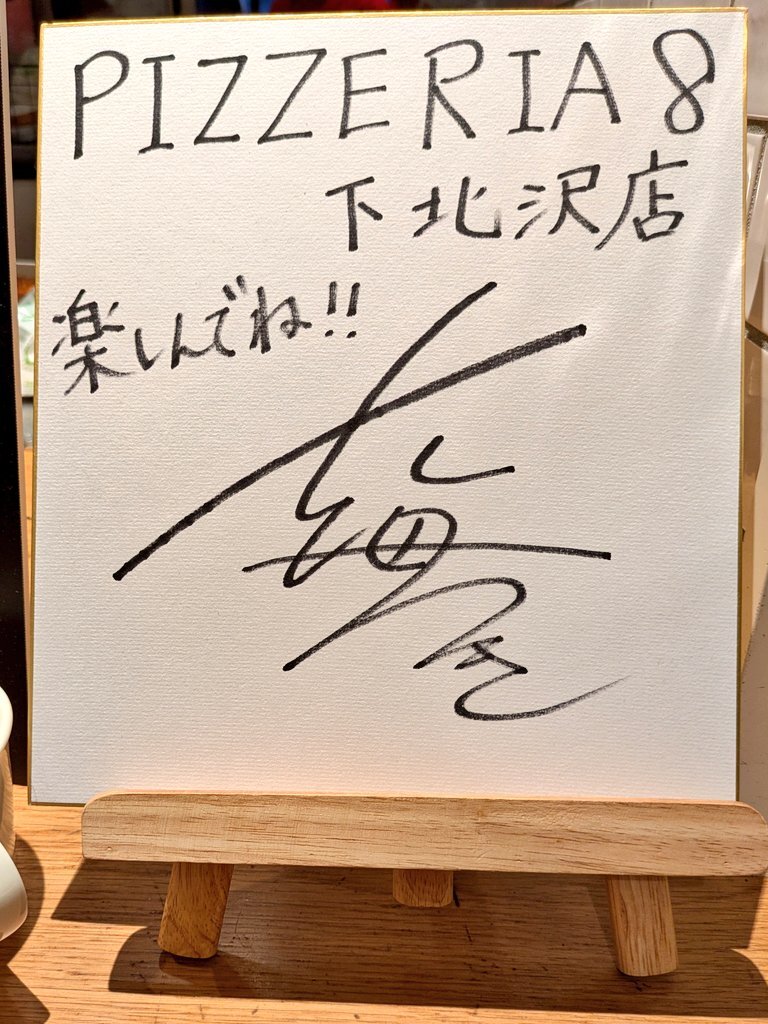 PIZZERIA 8
下北沢店
楽しんでね!!